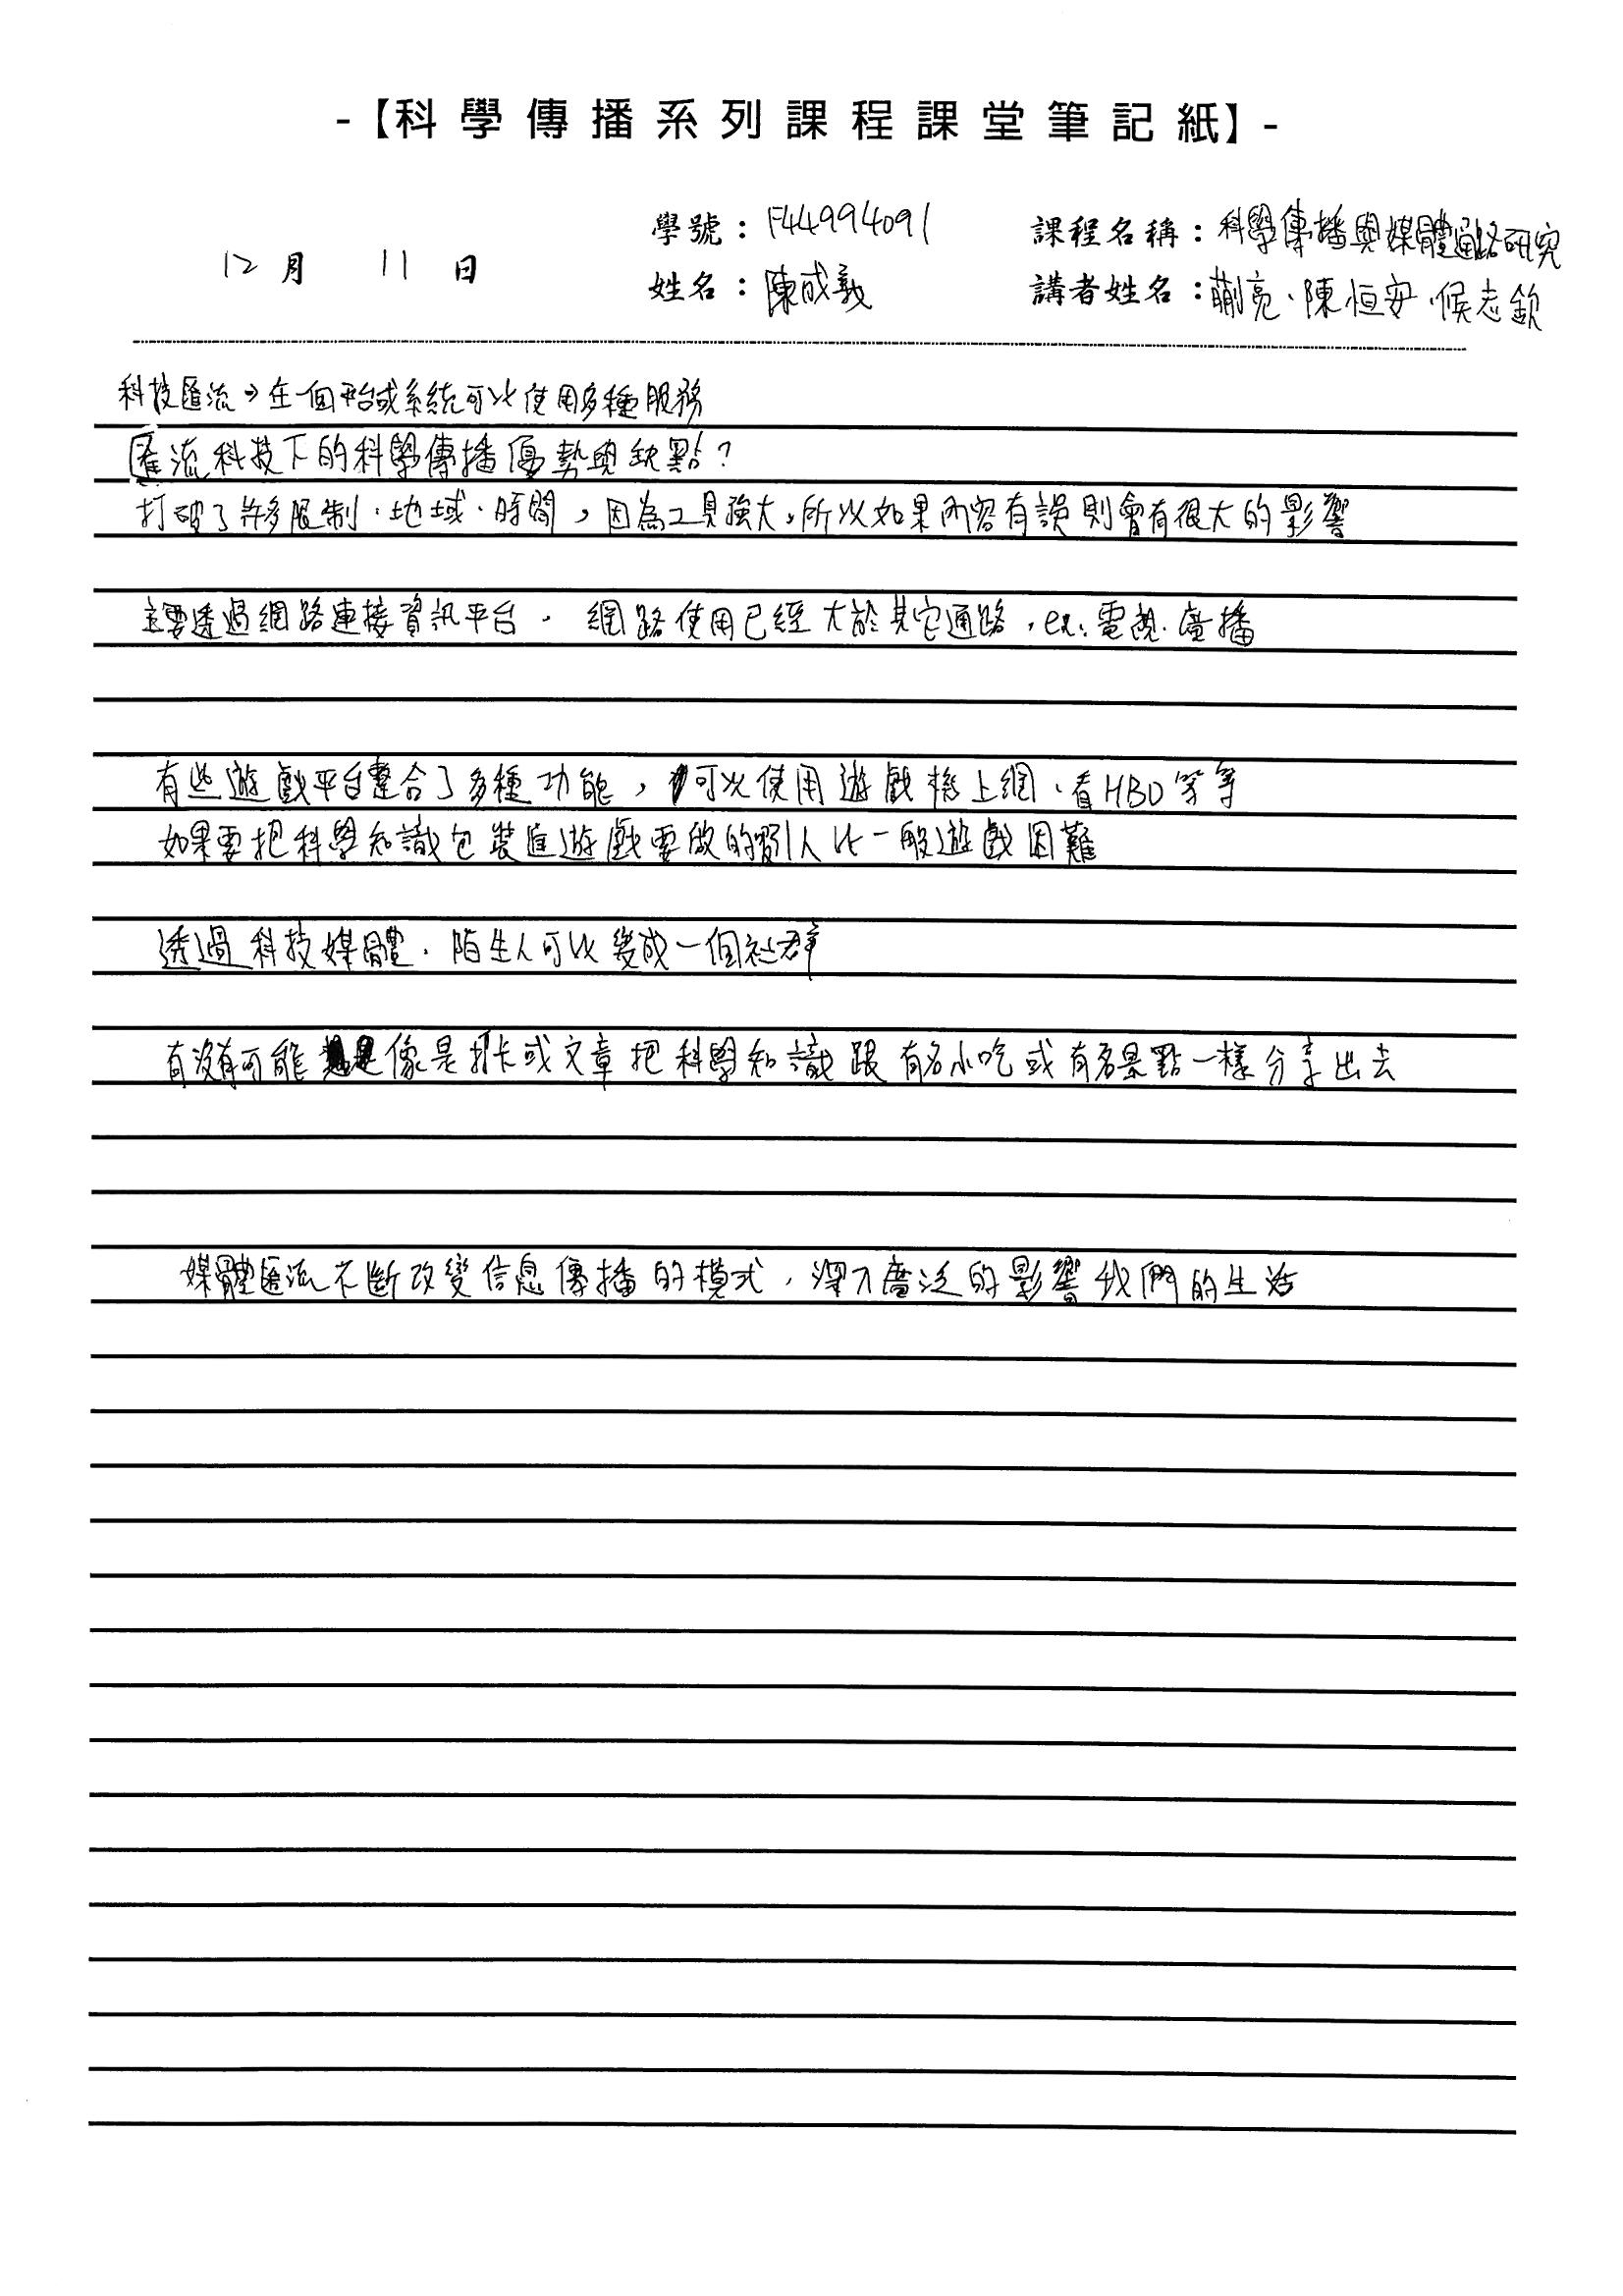 -【科學傳播系列課程課堂筆記紙】-
學號：F44994091 課程名稱：科學傳播與媒體通路研究
12月 11日 姓名：陳成義 講者姓名：蒯亮、陳恒安、侯志欽
科技匯流→在一個平台或系統可以使用多種服務
匯流科技下的科學傳播優勢與缺點？
打破了許多限制、地域、時間，因為工具強大，所以如果內容有誤則會有很大的影響
主要透過網路連接資訊平台， 網路使用已經大於其它通路，ex:電視、廣播
有些遊戲平台整合了多種功能，可以使用遊戲機上網、看HBO等等
如果要把科學知識包裝進遊戲要做的吸引人比一般遊戲困難
透過科技媒體，陌生人可以變成一個社群
有沒有可能像是打卡或文章把科學知識跟有名小吃或有名景點一樣分享出去
媒體匯流不斷改變信息傳播的模式，深入廣泛的影響我們的生活